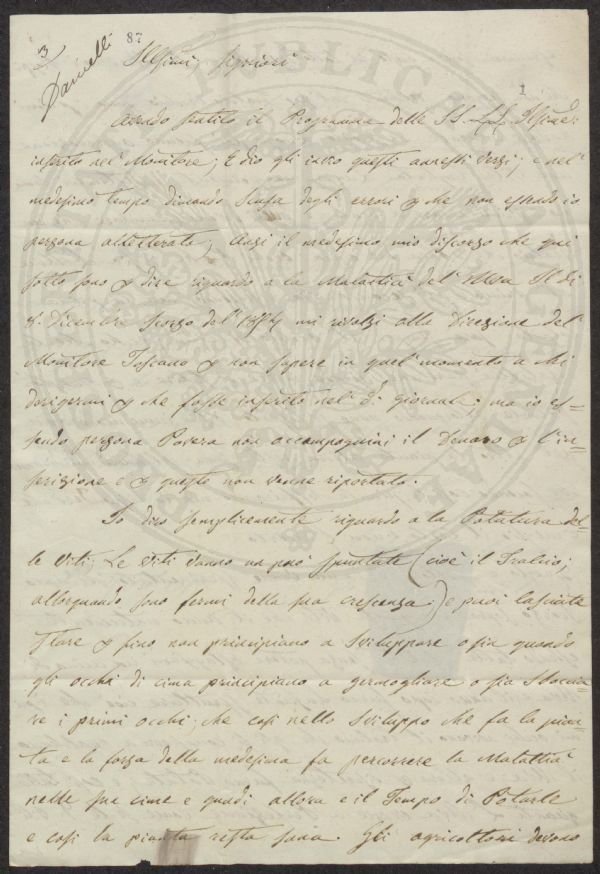 3
Danielli
87
Ill.simi Signiori
1
Avendo sentito il Programma delle SS. LL. Ill.me
inserito nel' Monitore; E dio gli invio questi versi; e nel'
medesimo tempo dimando scusa degli errori p che non essendo io
persona alletterata; Anzi il medesimo mio discorso che qui
sotto sono p dire riguardo a la Malattia del' Uva Il di
8. Dicembre scorzo del' 1854 mi rivolzi alla Direzione del'
Monitore Toscano p non sapere in quel' momento a chi
dirigermi p che fosse inserito nel' d.o giornale; ma io es=
sendo persona Povera non accompagniai il Denaro p l'in=
serizione e p questo non venne riportato.
Io dico semplicemente riguardo a la Potatura del=
le Viti; Le Viti vanno un può spuntate (cioè il Tralcio;
allorquando sono fermi della sua crescenza:) e puoi lasciate
stare p fino non principiano a Sviluppare o sia quando
gli occhi di cima principiano a germogliare o sia Sboccia=
re i primi occhi; che cosi nello Sviluppo che fa la pian=
ta e la forza della medesima fa percorrere la Malattia
nelle sue cime e quindi allora e il Tempo di Potarle
e cosi la pianta resta sana. Gli agricoltori devono